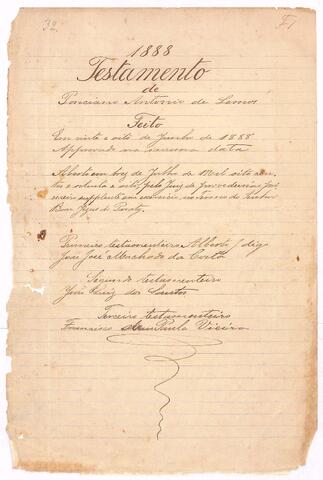 32
1888
Testamento
de
Ponciano Antonio de Lemos
Feito
Em vinte e oito de Junho de 1888
Approvado na mesma data
Aberto em tres de Julho de Mil oito cen-
tos e oitenta e oito, pelo Juiz de
supplente em exercicio no termo de Senhor
Bom Jezus de
Primeiro testamenteiro Alberto, digo
José Machado da Costa
Segundo testamenteiro
José Luiz dos Santos
Terceiro testamenteiro
Francisco Paula Vieira